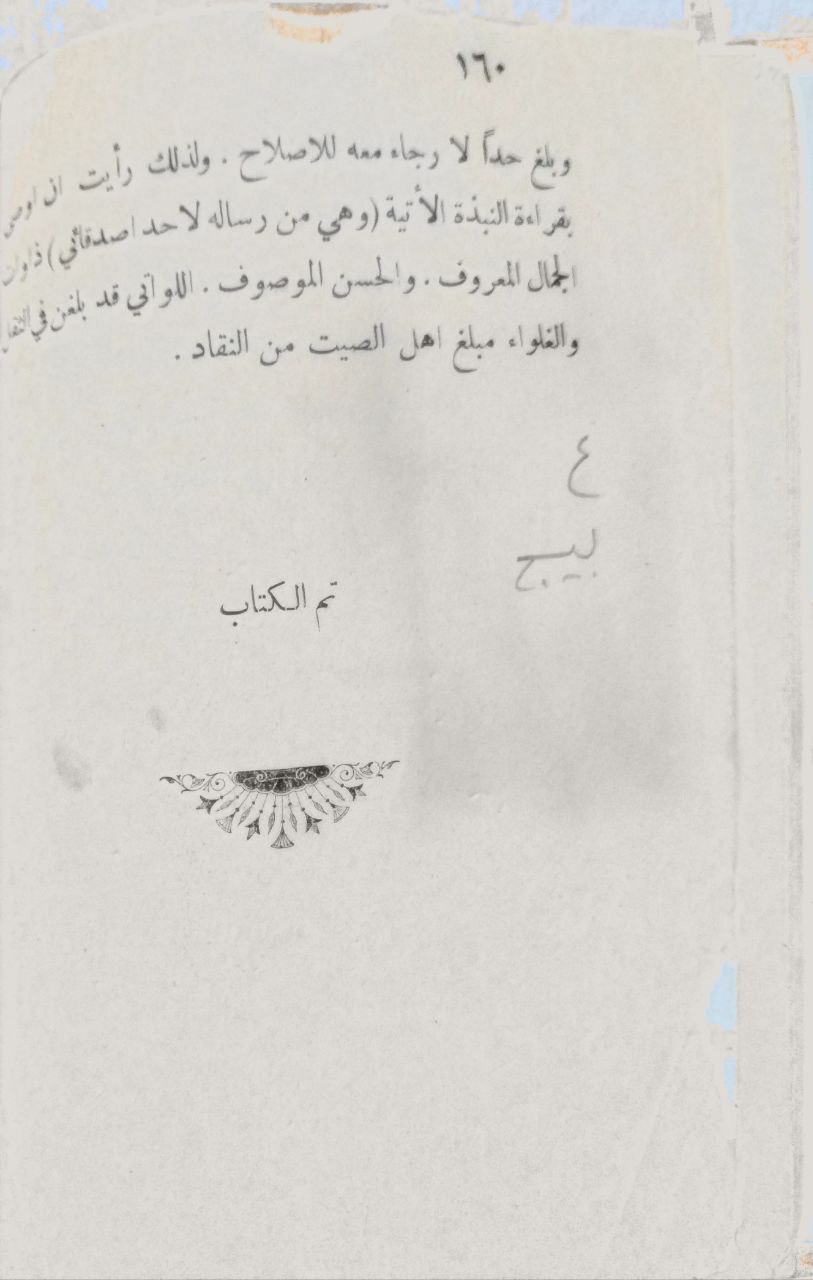 ١٦٠
وبلغ حداً لا رجاء معه للاصلاح . ولذلك رأيت ان اوصي
بقراءة النبذة الأتية (وهي من رساله لاحد اصدقائي) ذوات
الجمال المعروف . والحسن الموصوف . اللواتي قد بلغن في
والغلواء مبلغ اهل الصيت من النقاد .
٤
تم الكتاب